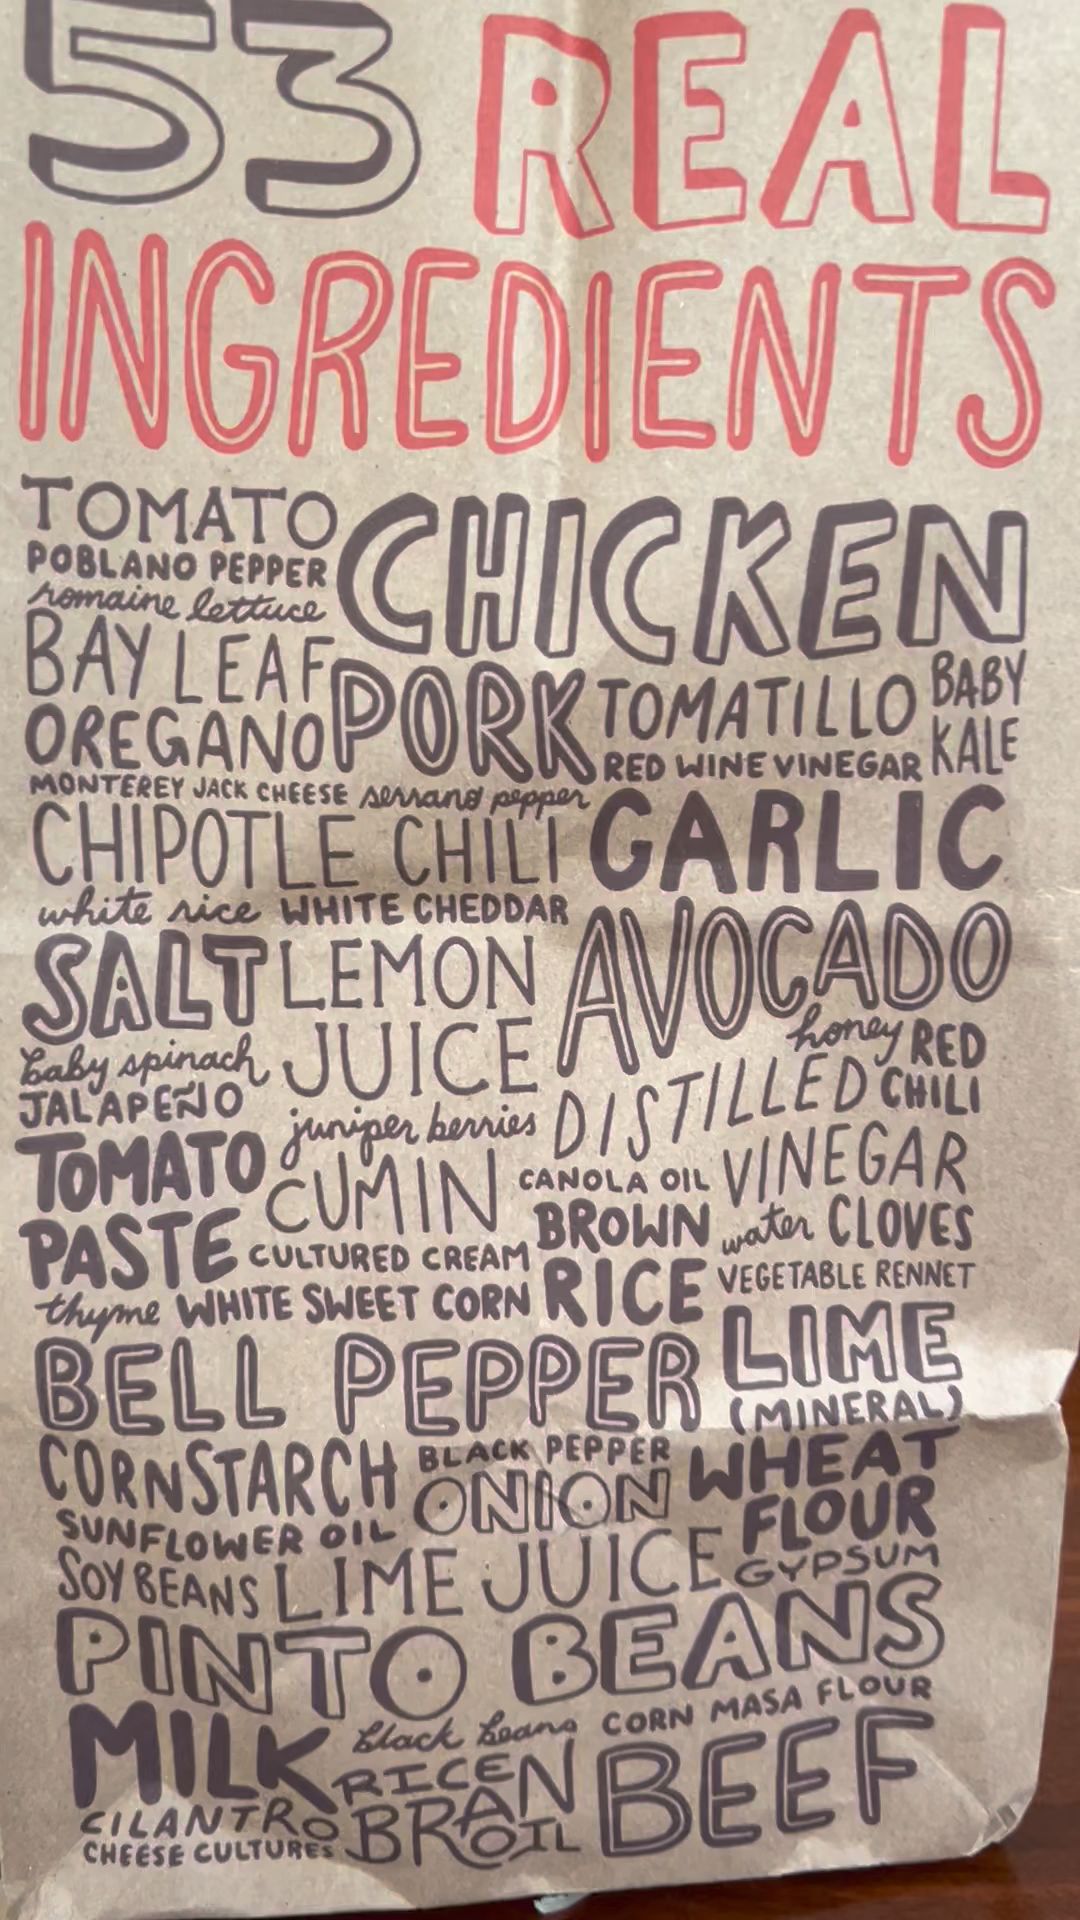 53 REAL
INGREDIENTS
TOMATO
POBLANO PEPPER
romaine lettuce
CHICKEN
BAY LEAF
OREGANO
PORK
TOMATILLO
RED WINE VINEGAR
BABY
KALE
MONTEREY JACK CHEESE
serrano pepper
CHIPOTLE CHILI
GARLIC
white rice
WHITE CHEDDAR
SALT
LEMON
JUICE
AVOCADO
honey
RED
CHILI
baby spinach
JALAPEÑO
juniper berries
DISTILLED
VINEGAR
TOMATO
PASTE
CUMIN
CANOLA OIL
BROWN
RICE
water
CLOVES
CULTURED CREAM
VEGETABLE RENNET
thyme
WHITE SWEET CORN
BELL PEPPER
LIME
(MINERAL)
CORNSTARCH
BLACK PEPPER
ONION
WHEAT
FLOUR
SUNFLOWER OIL
SOYBEANS
LIME JUICE
GYPSUM
PINTO BEANS
MILK
black beans
CORN MASA FLOUR
RICE
BRAN
OIL
BEEF
CILANTRO
CHEESE CULTURES